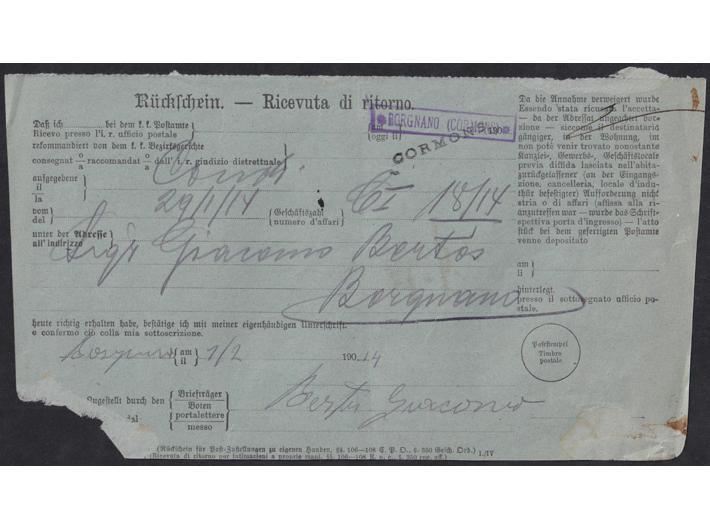 Rückschein. — Ricevuta di ritorno.
BORGNANO (CORMONS)
CORMONS
Daß ich bei dem k. k. Postamte am 190
Ricevo presso l'i. r. ufficio postale (oggi il)
rekommandiert von dem k. k. Bezirksgerichte
consegnat o/a raccomandat o/a dall' i. r. giudizio distrettuale
aufgegebene
il
la
vom 29/1/14 Geschäftszahl CI 18/14
del numero d'affari
unter der Adresse Sigr Giacomo Bertos
all'indirizzo
Borgnano
heute richtig erhalten habe, bestätige ich mit meiner eigenhändigen Unterschrift.
e confermo ciò colla mia sottoscrizione.
am 1/2 190 14
il
zugestellt durch den Briefträger
Boten
dal portalettere
messo
Giacomo
(Rückschein für Post-Zustellungen zu eigenen Handen, §§. 106—108 C. P. O., §. 350 Gesch. Ord.) 1./IV
(Ricevuta di ritorno per intimazioni a proprie mani, §§. 106—108 R. p. c., §. 350 reg. aff.)
Da die Annahme verweigert wurde
Essendo stata ricusata l'accetta-
— da der Adressat ungeachtet vor-
zione — siccome il destinatario
gängiger, in der Wohnung, im
non potè venir trovato nonostante
Kanzlei-, Gewerbs-, Geschäftslocale
previa diffida lasciata nell'abita-
zurückgelassener (an der Eingangs-
zione, cancelleria, locale d'indu-
thür befestigter) Aufforderung nicht
stria o di affari (affissa alla ri-
anzutreffen war — wurde das Schrift-
spettiva porta d'ingresso) — l'atto
stück bei dem gefertigten Postamte
venne depositato
am
li
hinterlegt.
presso il sottosegnato ufficio po-
stale.
Poststempel
Timbro
postale.